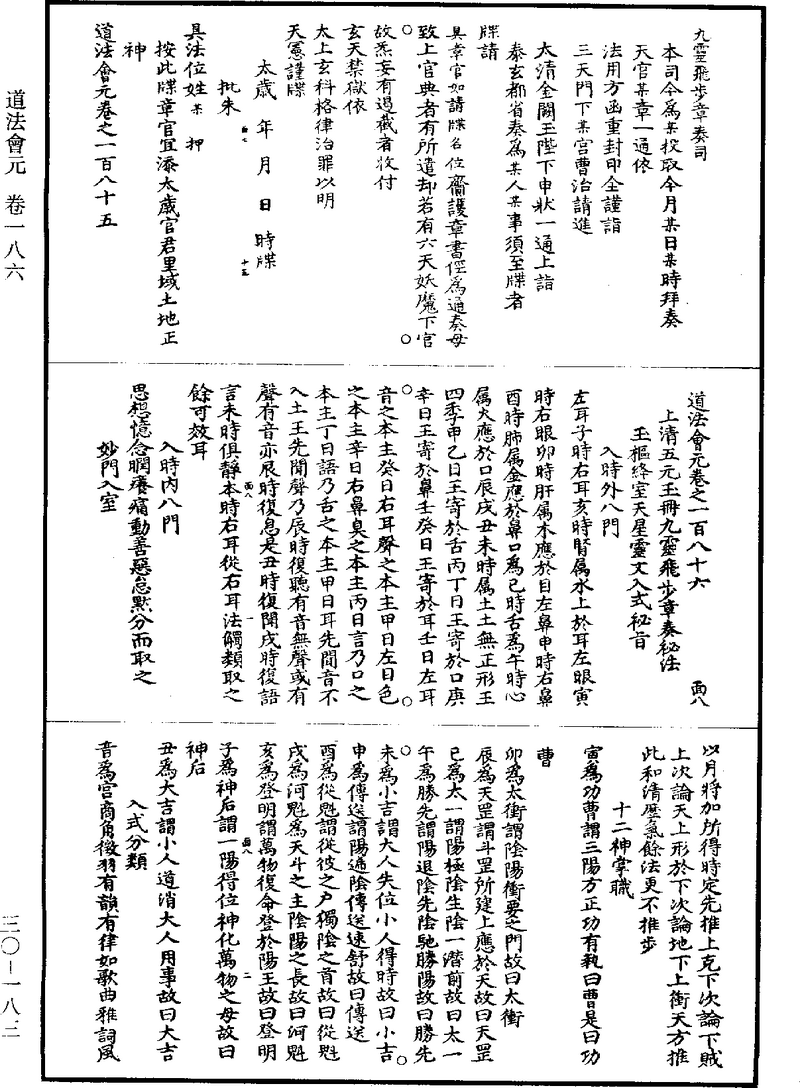 道法會元　卷一八六
九靈飛步章奏司
本司今為某投取今月某日某時拜奏
天官某章一通依
法用方函重封印全謹詣
三天門下某宮曹治請進
太清金闕玉陛下申狀一通上詣
泰玄都省奏為某人某事須至牒者
牒請
具章官如請牒名位齎護章書徑為通奏毋
致上官典者有所遣却若有六天妖魔下官
故炁妄有遏截者收付
玄天禁獄依
太上玄科格律治罪以明
天憲謹牒
太歲　年　月　日　時牒
批朱
具法位姓某　押
按此牒章官宜添太歲官君里域土地正
神
道法會元卷之一百八十五
道法會元卷之一百八十六　面八
上清五元玉冊九靈飛步章奏秘法
玉樞絳室天星靈文入式秘旨
入時外八門
左耳子時右耳亥時腎屬水上於耳左眼寅
時右眼卯時肝屬木應於目左鼻申時右鼻
酉時肺屬金應於鼻口為巳時舌為午時心
屬火應於口辰戌丑未時屬土土無正形王
四季甲乙日王寄於舌丙丁日王寄於口庚
辛日王寄於鼻壬癸日王寄於耳壬日左耳
音之本主癸日右耳聲之本主甲日左目色
之本主辛日右鼻臭之本主丙日言乃口之
本主丁日語乃舌之本主甲日耳先聞音不
入土王先聞聲乃辰時復聽有音無聲或有
聲有音亦辰時復息是丑時復聞戌時復語
言未時俱靜本時右耳從右耳法觸類取之
餘可效耳
入時內八門
思想憶念瞤癢痛動善惡忌默分而取之
妙門入室
以月將加所得時定先推上克下次論下賊
上次論天上形於下次論地下上衝天方推
此和清塵氣餘法更不推步
十二神掌職
寅為功曹謂三陽方正功有執曰曹是曰功
曹
卯為太衝謂陰陽衝要之門故曰太衝
辰為天罡謂斗罡所建上應於天故曰天罡
巳為太一謂陽極陰生陰一潛前故曰太一
午為勝先謂陽退陰先陰馳勝陽故曰勝先
未為小吉謂大人失位小人得時故曰小吉
申為傳送謂陽通陰傳送速舒故曰傳送
酉為從魁謂從彼之戶獨陰之首故曰從魁
戌為河魁為天斗之主陰陽之長故曰河魁
亥為登明謂萬物復命登於陽王故曰登明
子為神后謂一陽得位神化萬物之母故曰
神后
丑為大吉謂小人道消大人用事故曰大吉
入式分類
音為宮商角徵羽有韻有律如歌曲雅詞風
三〇―一八二